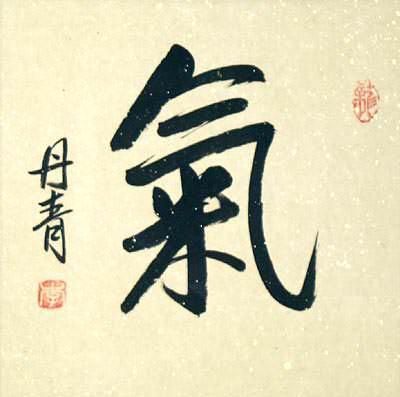 氣
丹青